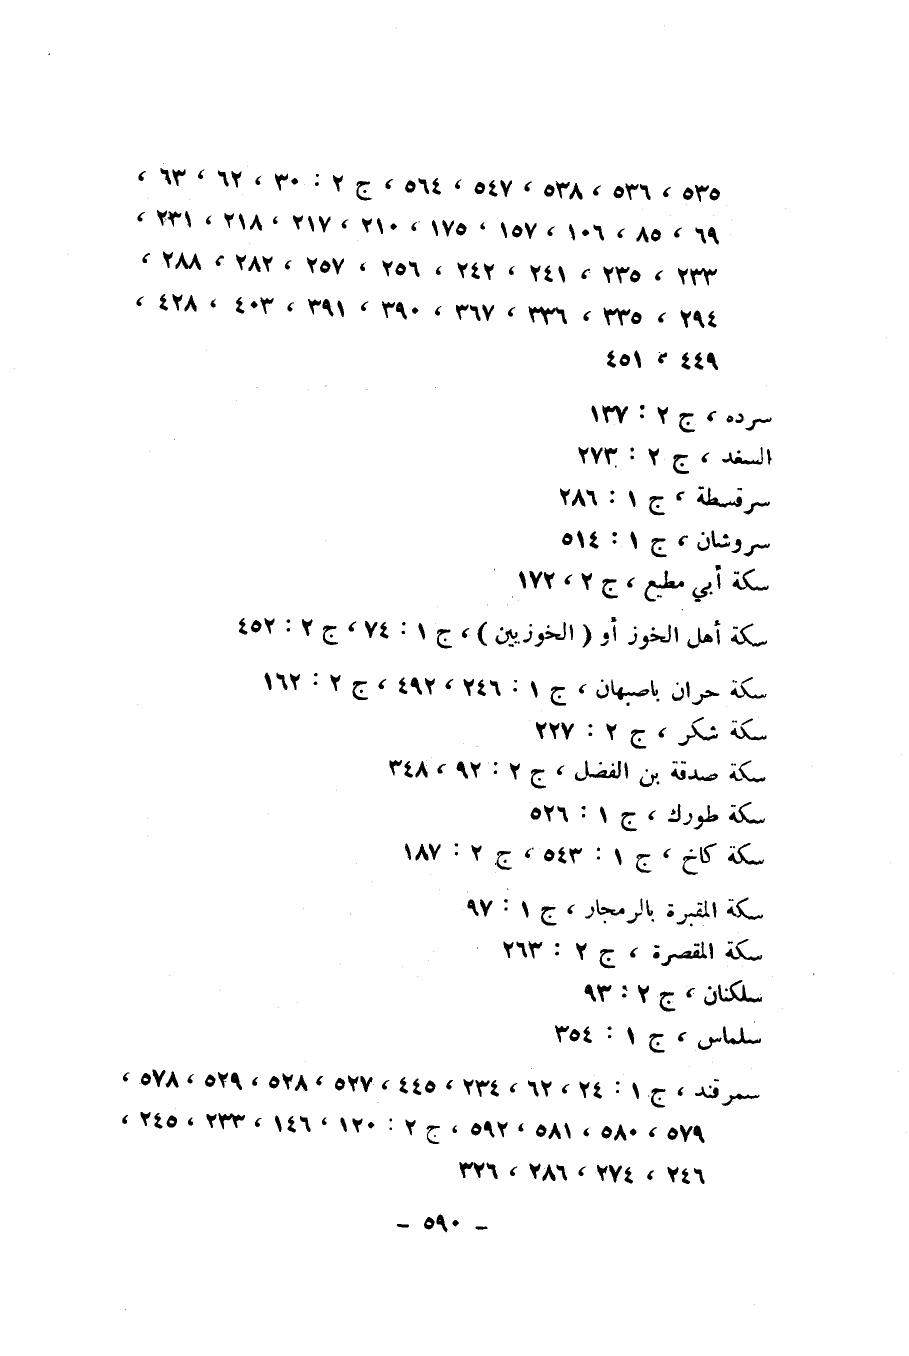 ٥٣٥ ، ٥٣٦ ، ٥٣٨ ، ٥٤٧ ، ٥٦٤ ، ج ٢ : ٣٠ ، ٦٢ ، ٦٣ ،
٦٩ ، ٨٥ ، ١٠٦ ، ١٥٧ ، ١٧٥ ، ٢١٠ ، ٢١٧ ، ٢١٨ ، ٢٣١ ،
٢٣٣ ، ٢٣٥ ، ٢٤١ ، ٢٤٢ ، ٢٥٦ ، ٢٥٧ ، ٢٨٢ ، ٢٨٨ ،
٢٩٤ ، ٣٣٥ ، ٣٣٦ ، ٣٦٧ ، ٣٩٠ ، ٣٩١ ، ٤٠٣ ، ٤٢٨ ،
٤٤٩ ، ٤٥١
سرده ، ج ٢ : ١٣٧
السفد ، ج ٢ : ٢٧٣
سرقسطة ، ج ١ : ٢٨٦
سروشان ، ج ١ : ٥١٤
سكة أبي مطيع ، ج ٢ ، ١٧٢
سكة أهل الخوز أو ( الخوزيين ) ، ج ١ : ٧٤ ، ج ٢ : ٤٥٢
سكة حران باصبهان ، ج ١ : ٢٤٦ ، ٤٩٢ ، ج ٢ : ١٦٢
سكة شكر ، ج ٢ : ٢٢٧
سكة صدقة بن الفضل ، ج ٢ : ٩٢ ، ٣٤٨
سكة طورك ، ج ١ : ٥٢٦
سكة كاخ ، ج ١ : ٥٤٣ ، ج ٢ : ١٨٧
سكة المقبرة بالرمجار ، ج ١ : ٩٧
سكة المقصرة ، ج ٢ : ٢٦٣
سلكنان ، ج ٢ : ٩٣
سلماس ، ج ١ : ٣٥٤
سمرقند ، ج ١ : ٢٤ ، ٦٢ ، ٢٣٤ ، ٤٤٥ ، ٥٢٧ ، ٥٢٨ ، ٥٢٩ ، ٥٧٨ ،
٥٧٩ ، ٥٨٠ ، ٥٨١ ، ٥٩٢ ، ج ٢ : ١٢٠ ، ١٤٦ ، ٢٣٣ ، ٢٤٥ ،
٢٤٦ ، ٢٧٤ ، ٢٨٦ ، ٣٢٦
- ٥٩٠ -